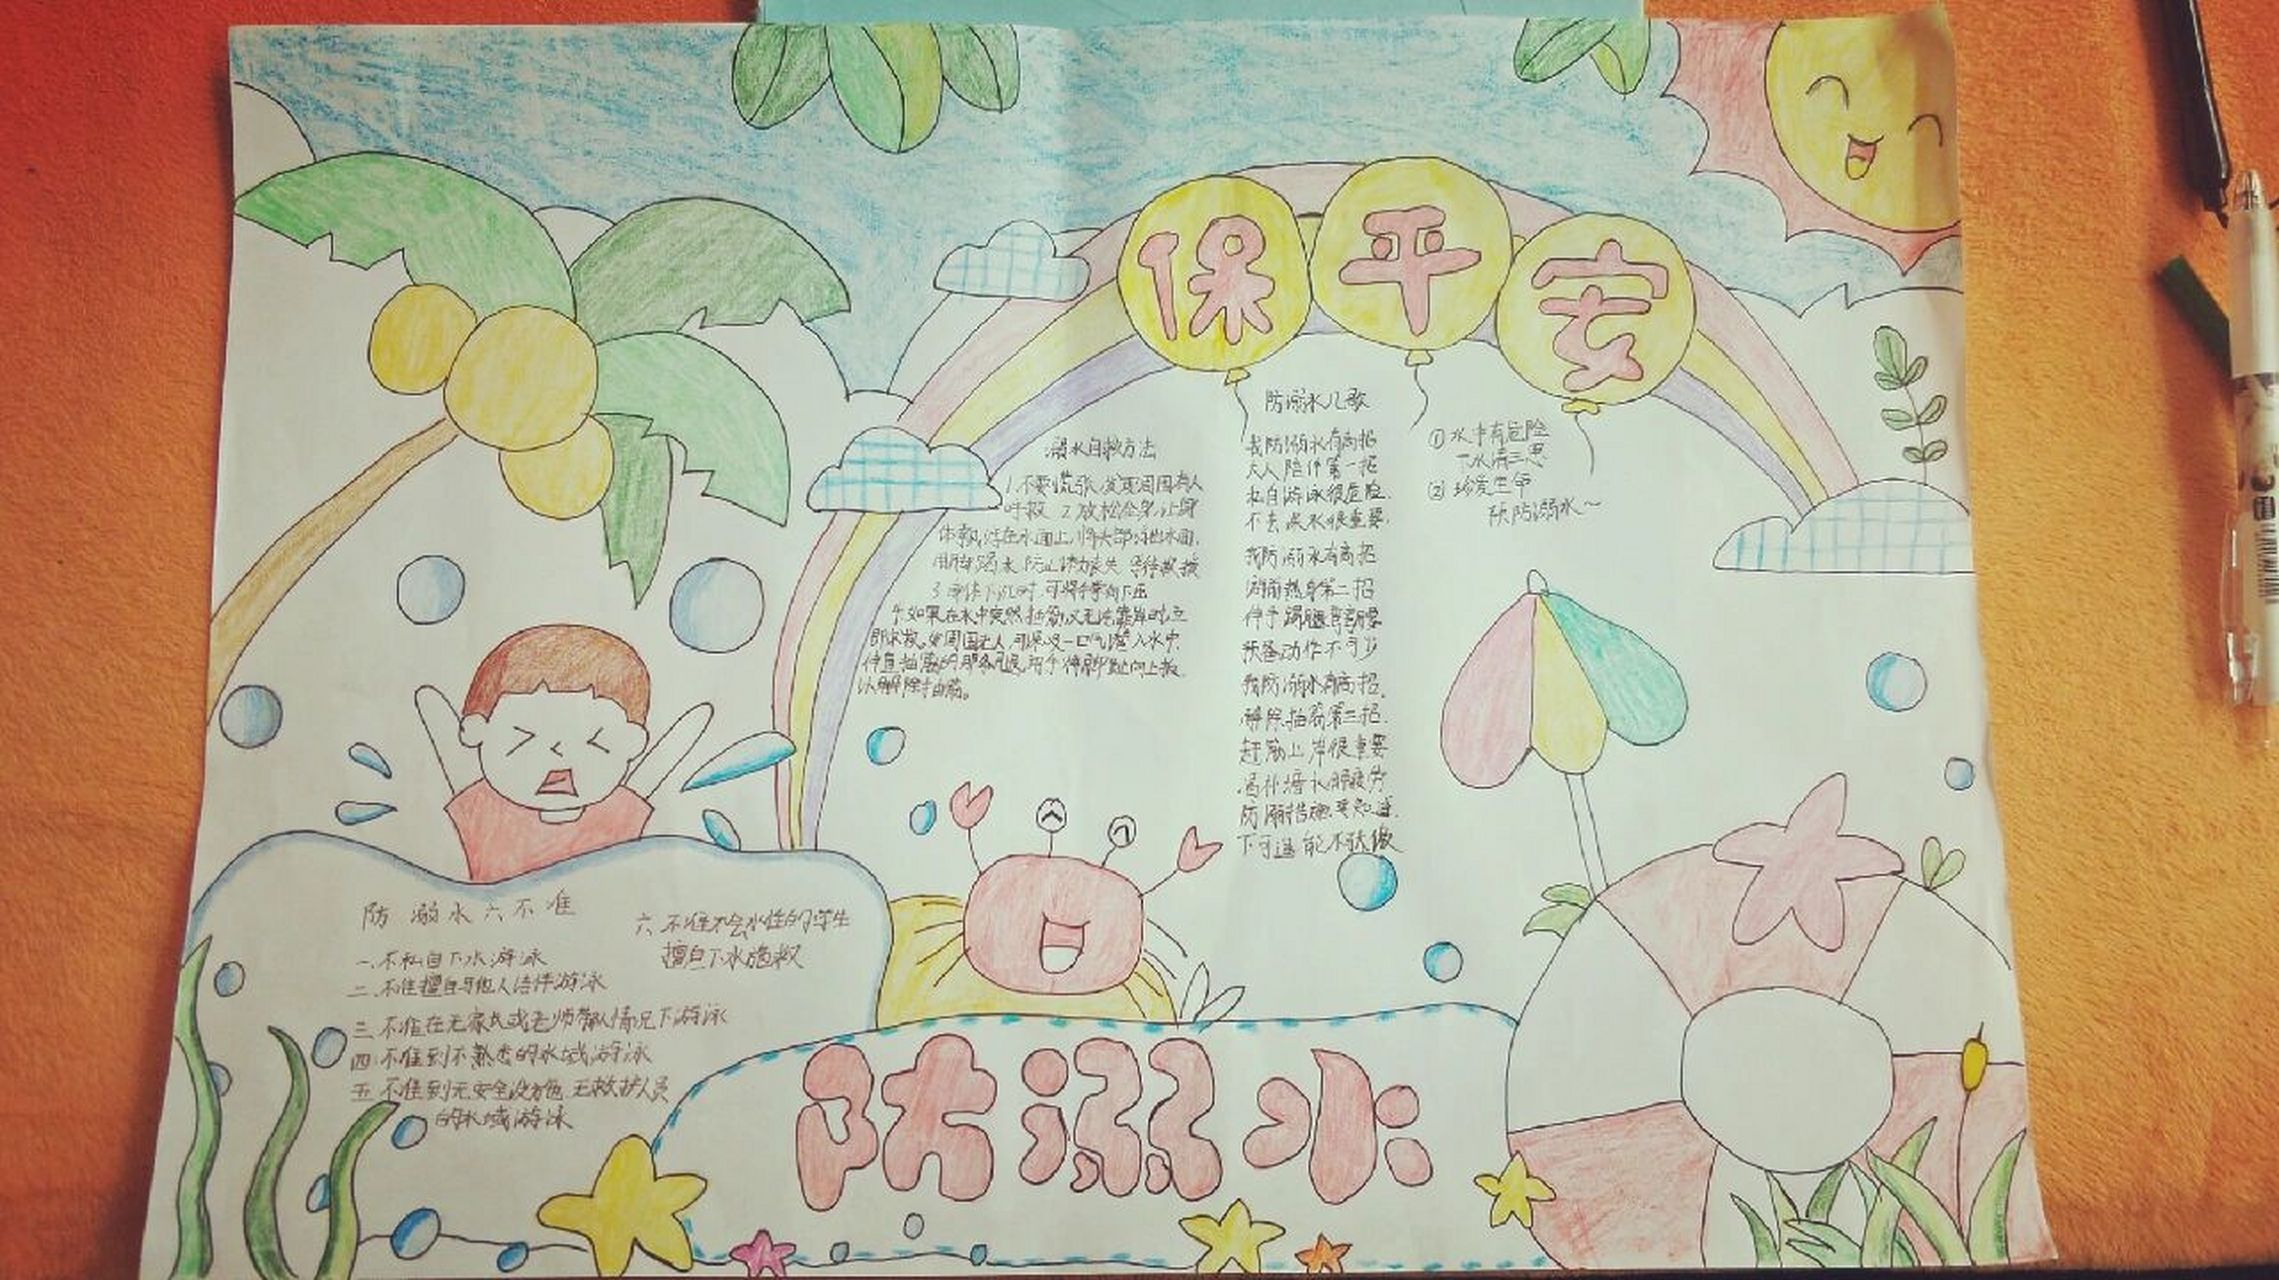 保平安
防溺水儿歌
我防溺水有高招
大人陪伴第一招
私自游泳很危险
不去深水很重要
我防溺水有高招
游前热身第二招
伸手踢腿弯弯腰
预备动作不可少
我防溺水有高招
解除抽筋第三招
赶励上岸很重要
防溺措施要知道
① 水中有危险
下水请三思
② 珍爱生命
预防溺水~
溺水自救方法
1.不要慌张,发现周围有人
呼救 2.放松全身,让身
体飘浮在水面上,将头部浮出水面,
用脚踢水,防止体力丧失,等待救援
3.身体下沉时,可将手掌向下压
4.如果在水中突然抽筋,又无法靠岸时,立
即求救,如周围无人,可深吸一口气潜入水中,
伸直抽筋的那条腿,用手将脚趾向上扳
以解除抽筋。
防溺水六不准
一、不私自下水游泳
二、不准擅自与他人结伴游泳
三、不准在无家长或老师带队情况下游泳
四、不准到不熟悉的水域游泳
五、不准到无安全设施、无救护人员
的水域游泳
六、不准不会水性的学生
擅自下水施救
防溺水